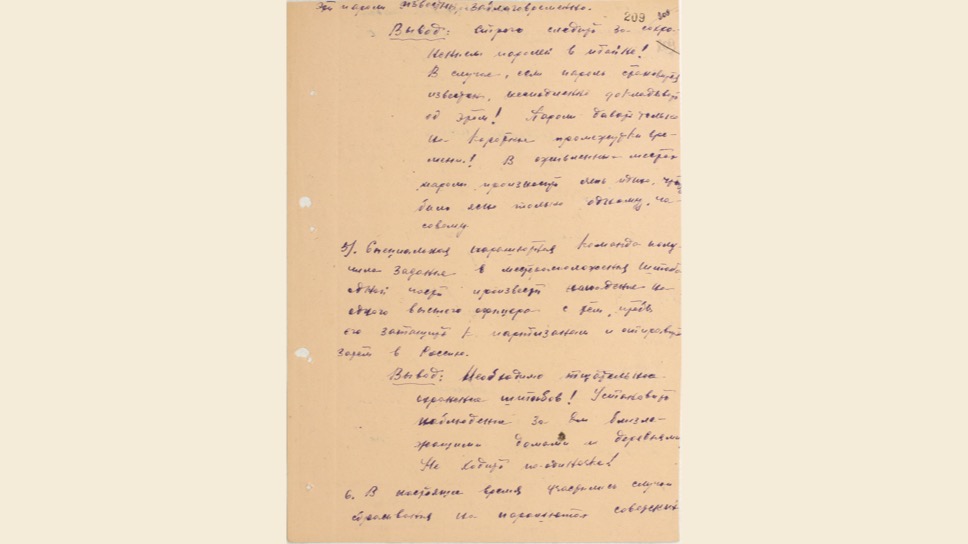 эти пароли известны заблаговременно.
209
Вывод: Строго следить за сохра-
нением паролей в тайне!
В случае, если пароль становится
известен, немедленно докладывать
об этом! Пароли давать только
на короткие промежутки вре-
мени! В оживленных местах
пароль произносить лишь тихо, чтобы
было ясно только одному ча-
совому.
5). Специальная парашютная команда полу-
чила задание в местоположении штаба
одной части произвести нападение на
одного высшего офицера с тем, чтобы
его затащить к партизанам и отправить
затем в Россию.
Вывод: Необходима тщательная
охрана штабов! Установить
наблюдение за близле-
жащими домами и деревьями.
Не ходить по-одиночке!
6. В настоящее время участились случаи
сбрасывания на парашютах советских